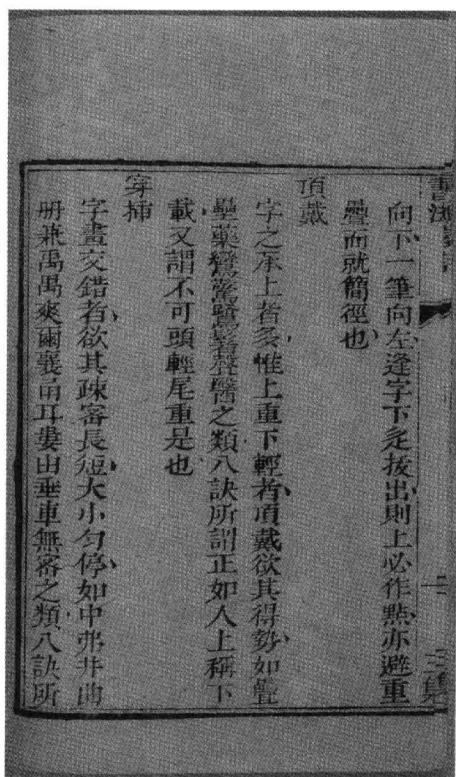 向下一筆向左逢字下辵拔出則上必作點亦避重
疊而就簡徑也
頂戴
字之承上者多惟上重下輕者頂戴欲其得勢如疊
壘藥鸞驚鷺鬢聲醫之類八訣所謂正如人上稱下
載又謂不可頭輕尾重是也
穿揷
字畫交錯者欲其疎密長短大小勻停如中弗井曲
册兼禹禺爽爾襄甬耳婁由垂車無密之類八訣所